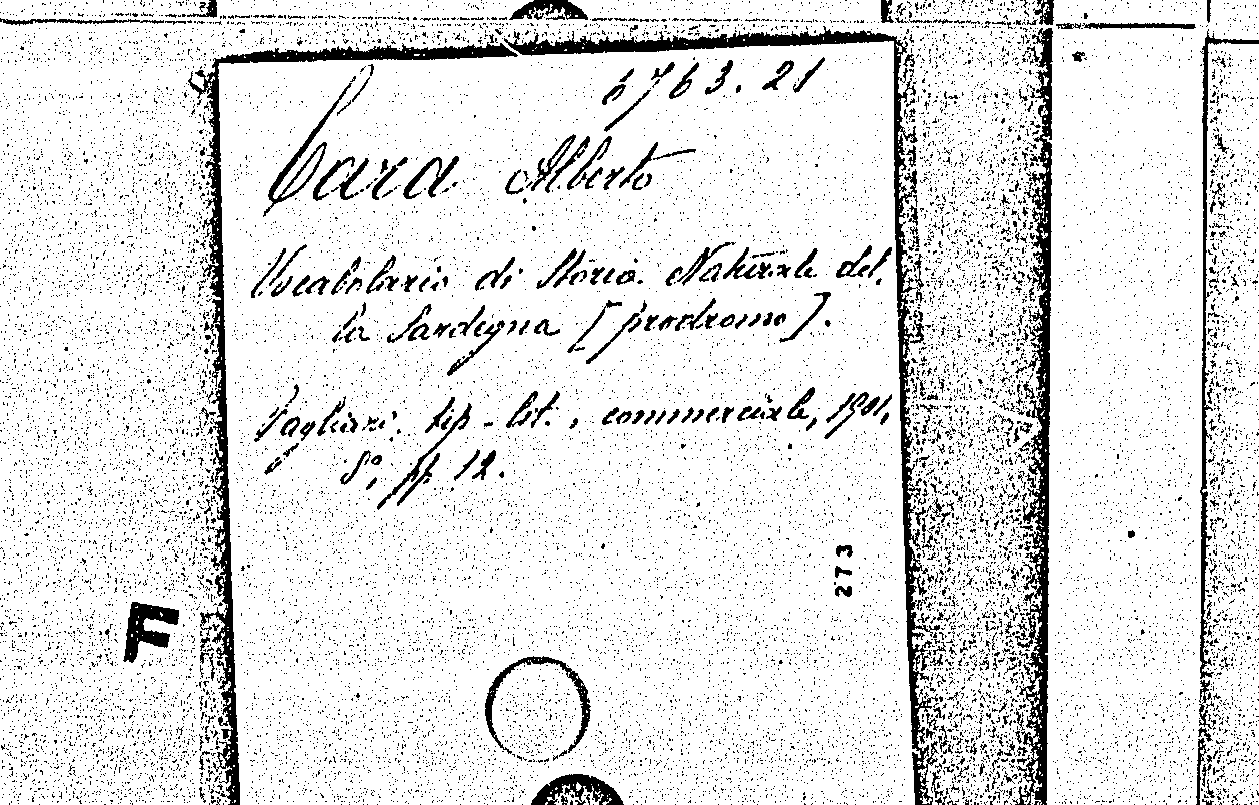 6763.21
Cara Alberto
Vocabolario di Storia Naturale del.
la Sardegna [prodromo].
Cagliari. tip-lit., commerciale, 1901,
8º, pp. 12.
273
F